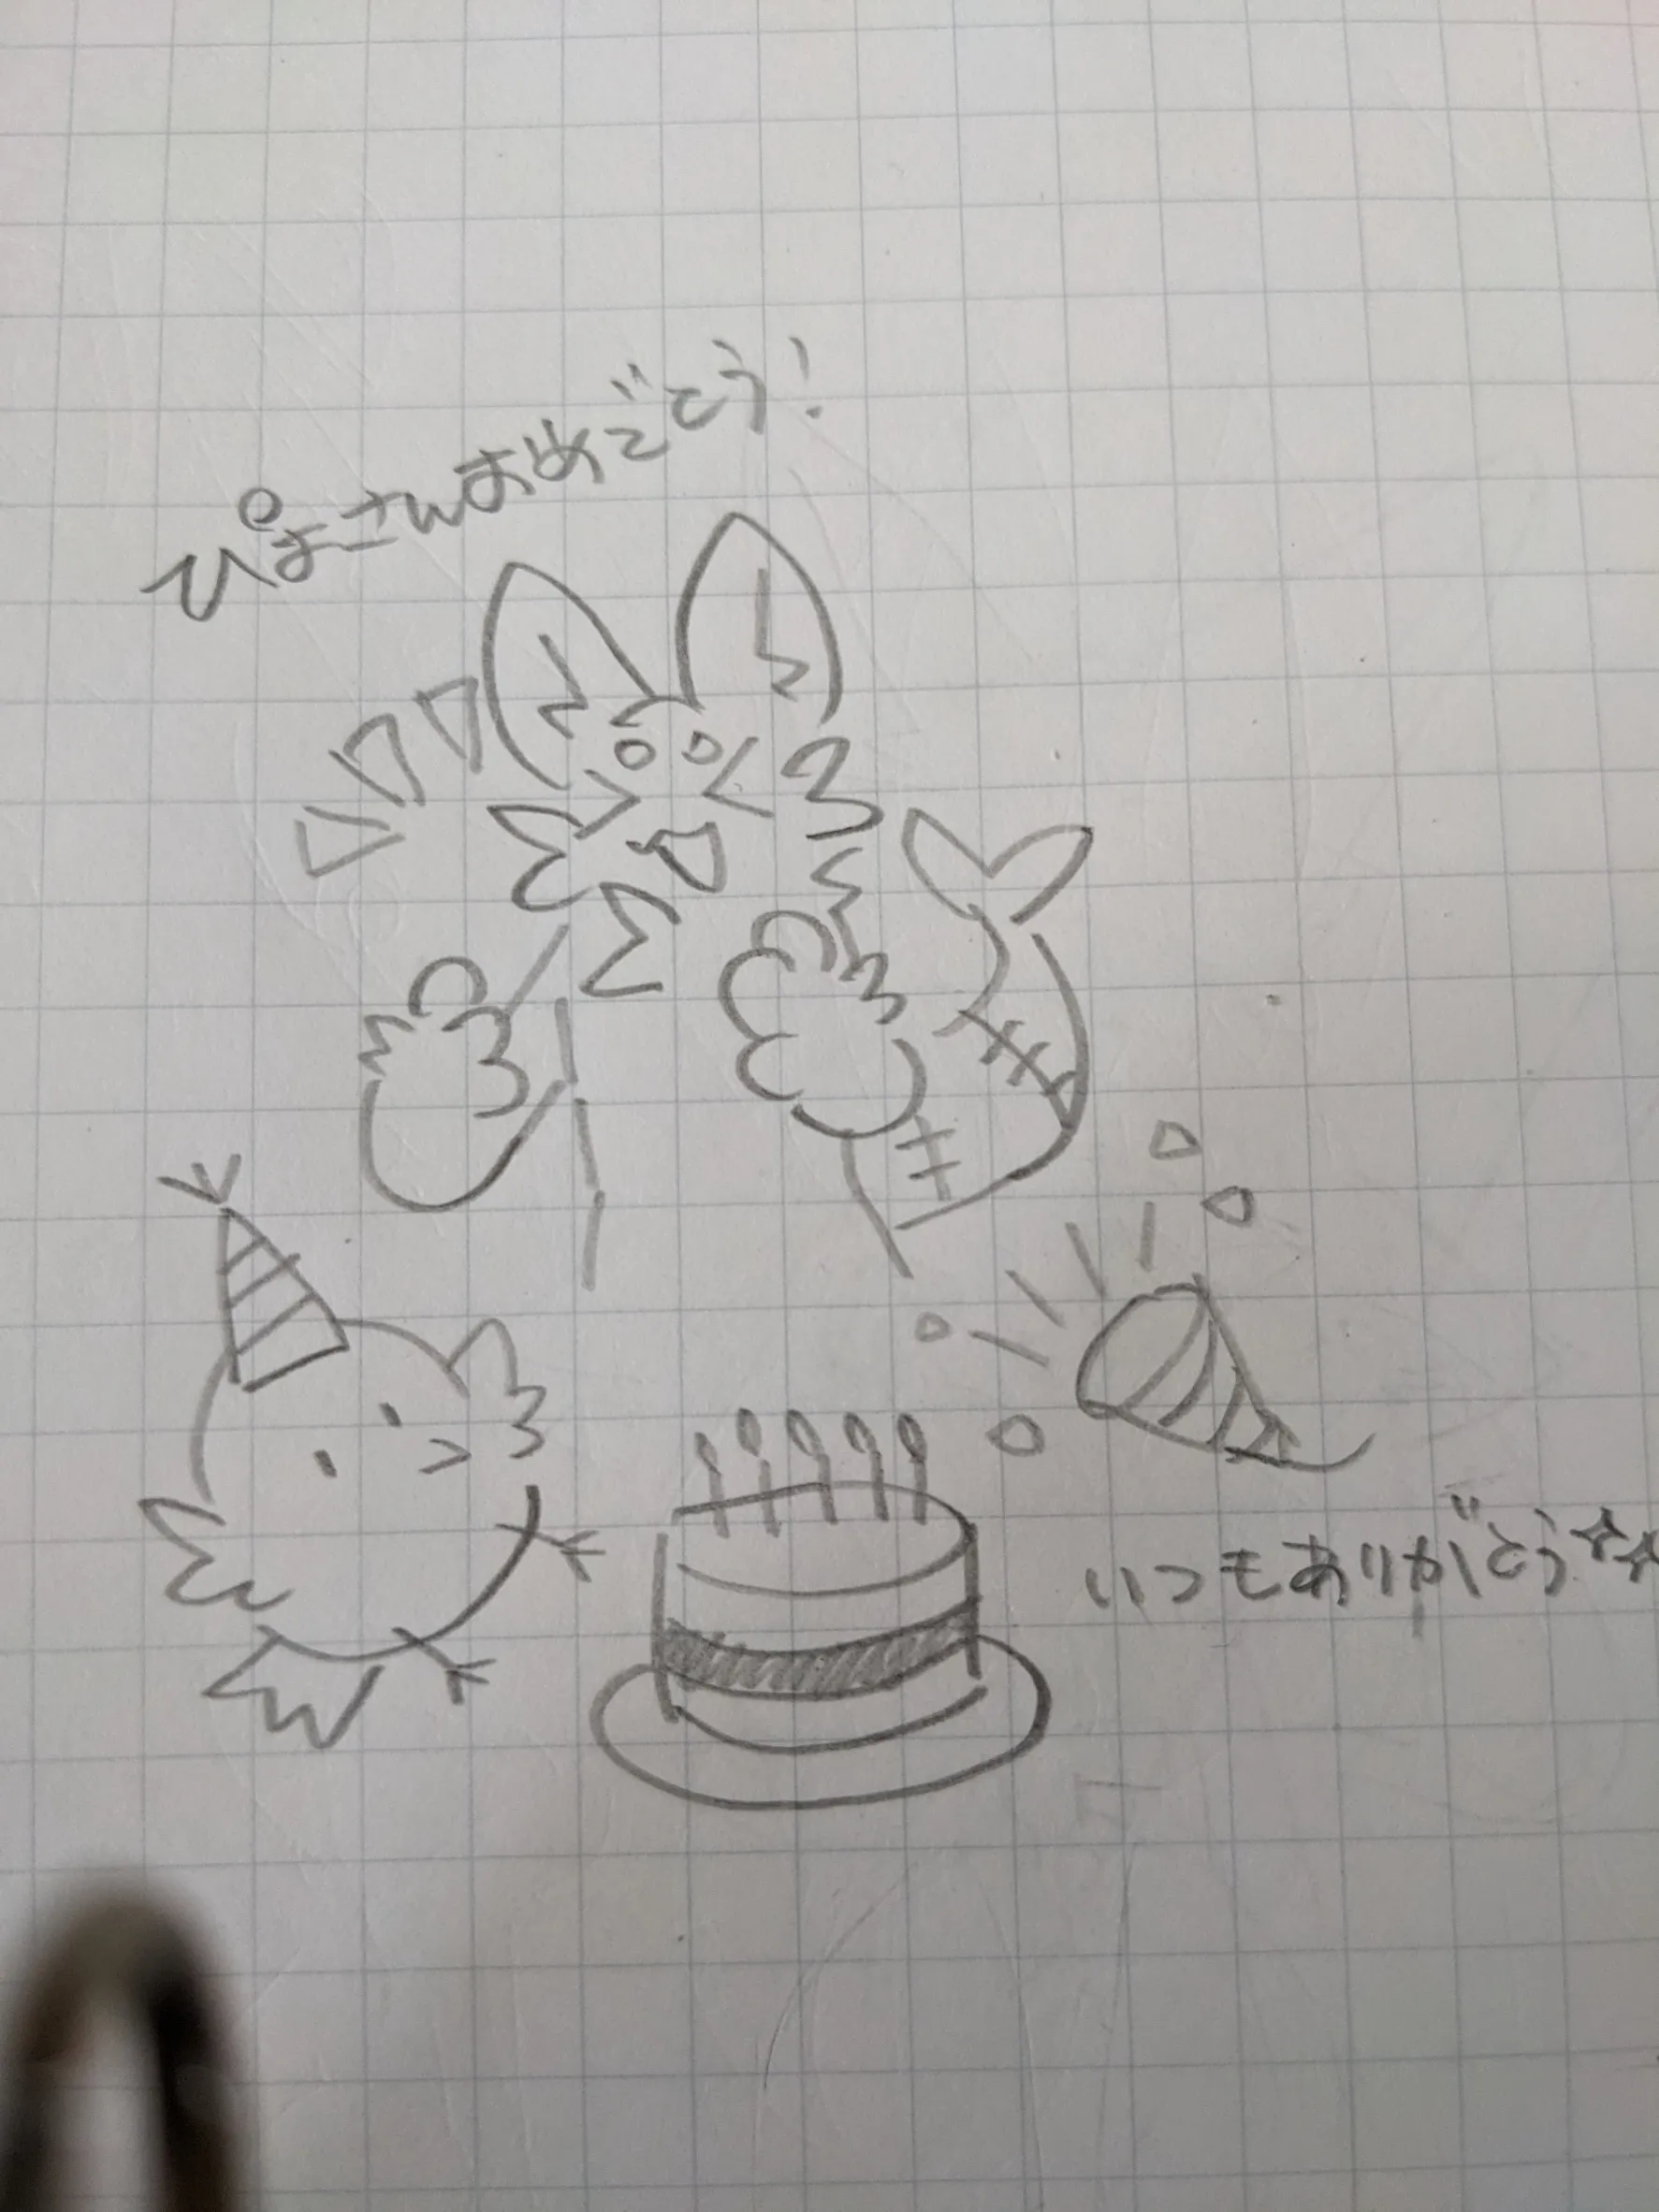 ぴよこさんおめでとう!
いつもありがとう